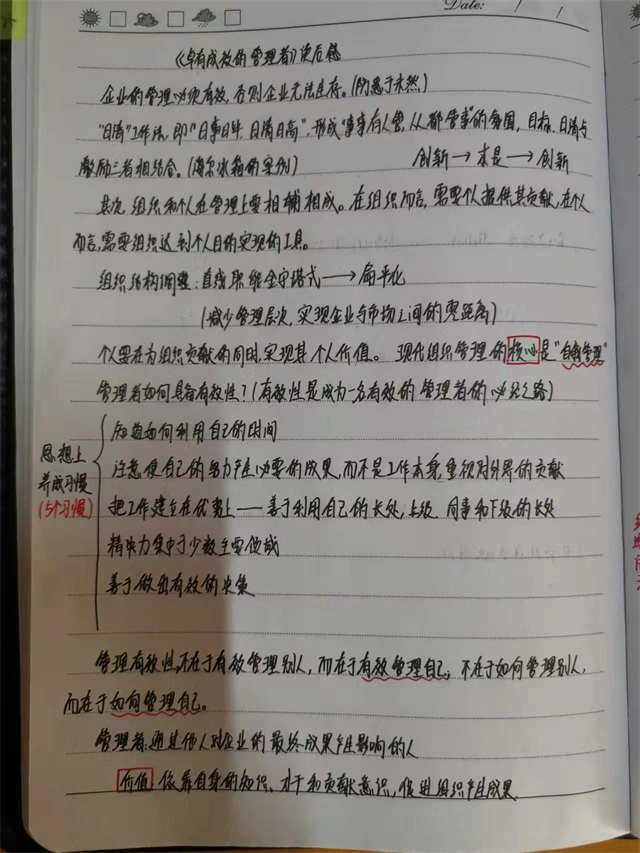 Date: / /
《卓有成效的管理者》读后感
企业的管理必须有效，否则企业无法生存。(防患于未然)
"日清"工作法，即"日事日毕，日清日高"，形成"事事有人管，人人都管事"的氛围，目标、日清与
激励三者相结合。(海尔冰箱的案例) 创新→本是→创新
其次，组织和个人在管理上要相辅相成。在组织而言，需要个人提供其贡献，在个人
而言，需要组织达到个人目的实现的工具。
组织结构调整：直线职能金字塔式→扁平化
(减少管理层次，实现企业与市场之间的零距离)
个人要在为组织贡献的同时，实现其个人价值。 现代组织管理的核心是"自我管理"
管理者如何具备有效性？(有效性是成为一名有效的管理者的必经之路)
思想上
养成习惯
(5个习惯)
知道如何利用自己的时间
注意使自己的努力产生必要的成果，而不是工作本身，重视对外界的贡献
把工作建立在优势上——善于利用自己的长处，上级、同事和下级的长处
精力集中于少数主要领域
善于做出有效的决策
管理有效性，不在于有效管理别人，而在于有效管理自己，不在于如何管理别人，
而在于如何管理自己。
管理者：通过他人对企业的最终成果产生影响的人
价值 依靠自身的知识、才干和贡献意识，促进组织产生成果